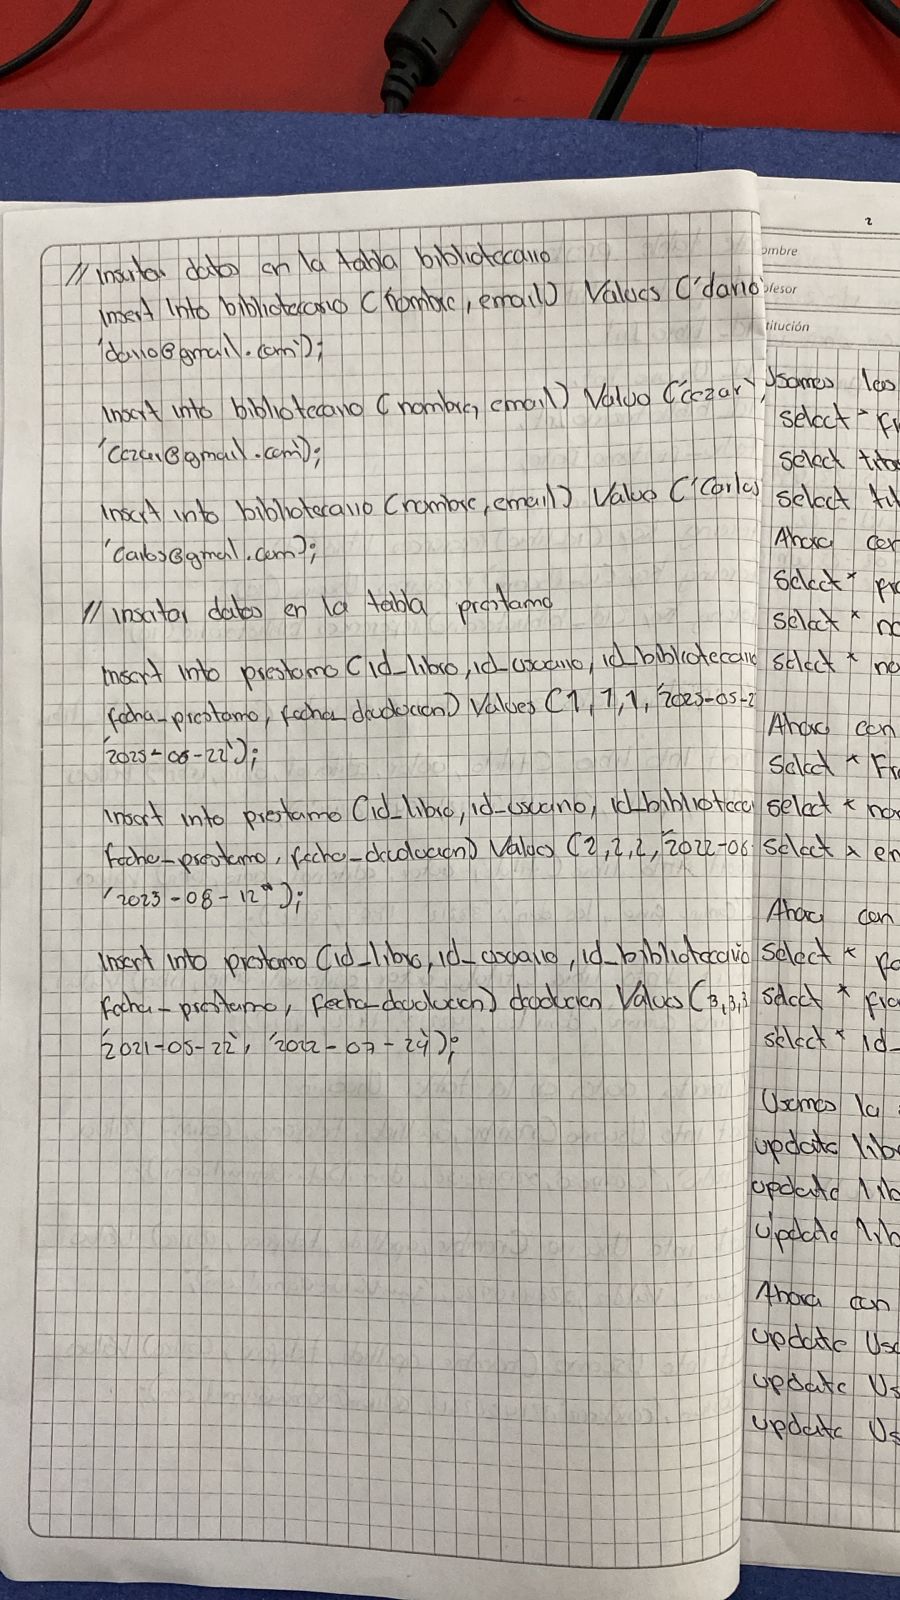 // insertar datos en la tabla bibliotecario
insert Into bibliotecario (nombre, email) Values ('dario
'dario@gmail.com');
insert into bibliotecario (nombre, email) Values ('cezar',
'Cezar@gmail.com');
insert into bibliotecario (nombre, email) Values ('Carlos
'Carlos@gmal.com');
// insertar datos en la tabla prestamo
insert into prestamo (id_libro, id_usuario, id_bibliotecario
fecha_prestamo, fecha_devolucion) Values (1, 1, 1, '2025-05-2
'2025-06-22');
insert into prestamo (id_libro, id_usuario, id_bibliotecar
fecha_prestamo, fecha_devolucion) Values (2, 2, 2, '2022-06
'2023-08-12");
insert into prestamo (id_libro, id_usuario, id_bibliotecario
fecha_prestamo, fecha_devolucion) devolucion Values (3, 3, 3
'2021-05-22', '2022-07-24');
2
ombre
ofesor
titución
Usamos las
select * Fr
select
select tit
Ahora con
Select * fro
select * no
select * no
Ahora con
Select * Fr
select * no
select * em
Ahora con
select * fe
select * fro
select * id_
Usamos la
update lib
update lib
update lib
Ahora con
update Us
update Us
update Us